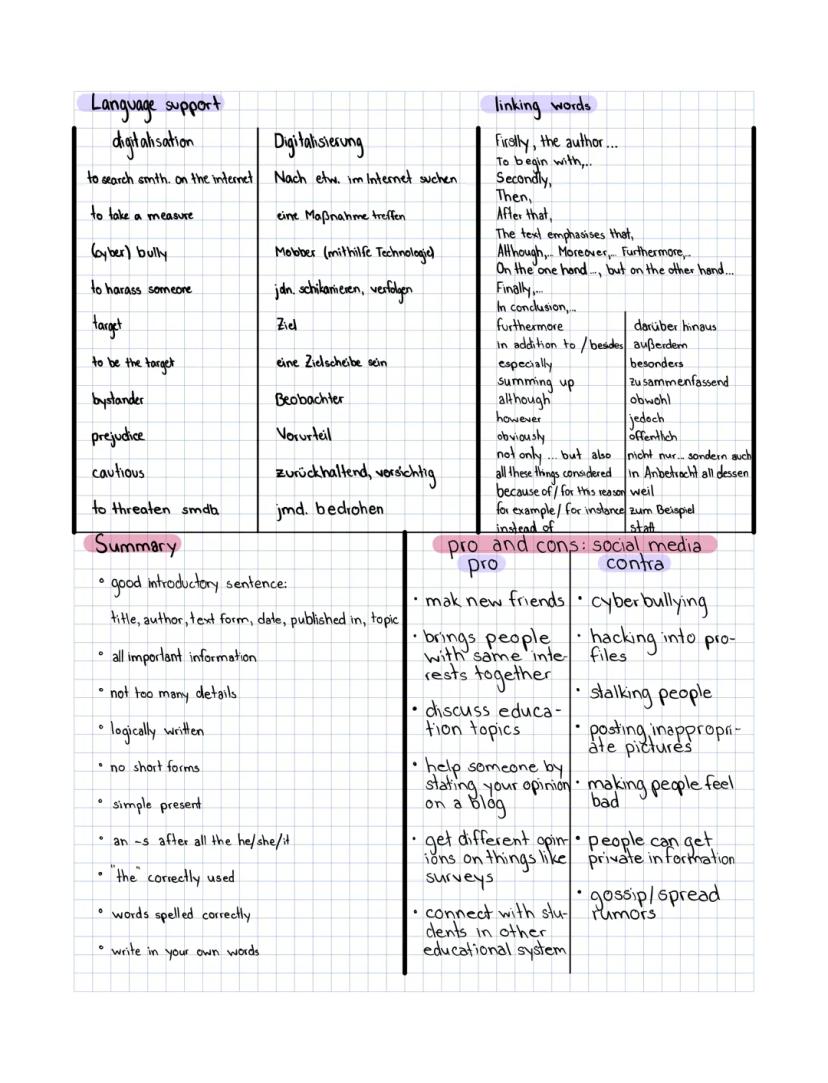 Language support
digitalisation Digitalisierung
to search smth. on the internet Nach etw. im Internet suchen
to take a measure eine Maßnahme treffen
(cyber) bully Mobber (mithilfe Technologie)
to harass someone jdn. schikanieren, verfolgen
target Ziel
to be the target eine Zielscheibe sein
bystander Beobachter
prejudice Vorurteil
cautious zurückhaltend, vorsichtig
to threaten smdb jmd. bedrohen
linking words
Firstly, the author...
To begin with,...
Secondly,
Then,
After that,
The text emphasises that,
Although,... Moreover,... Furthermore,...
On the one hand..., but on the other hand...
Finally,...
In conclusion,...
furthermore darüber hinaus
in addition to / besides außerdem
especially besonders
summing up zusammenfassend
although obwohl
however jedoch
obviously offentlich
not only ... but also nicht nur... sondern auch
all these things considered in Anbetracht all dessen
because of / for this reason weil
for example / for instance zum Beispiel
instead of statt
Summary
• good introductory sentence:
title, author, text form, date, published in, topic
• all important information
• not too many details
• logically written
• no short forms
• simple present
• an -s after all the he/she/it
• "the" correctly used
• words spelled correctly
• write in your own words
pro and cons: social media
pro
• mak new friends
• brings people
with same inte-
rests together
• discuss educa-
tion topics
• help someone by
stating your opinion
on a blog
• get different opin-
ions on things like
surveys
• connect with stu-
dents in other
educational system
contra
• cyberbullying
• hacking into pro-
files
• stalking people
• posting inappropri-
ate pictures
• making people feel
bad
• people can get
private information
• gossip/spread
rumors